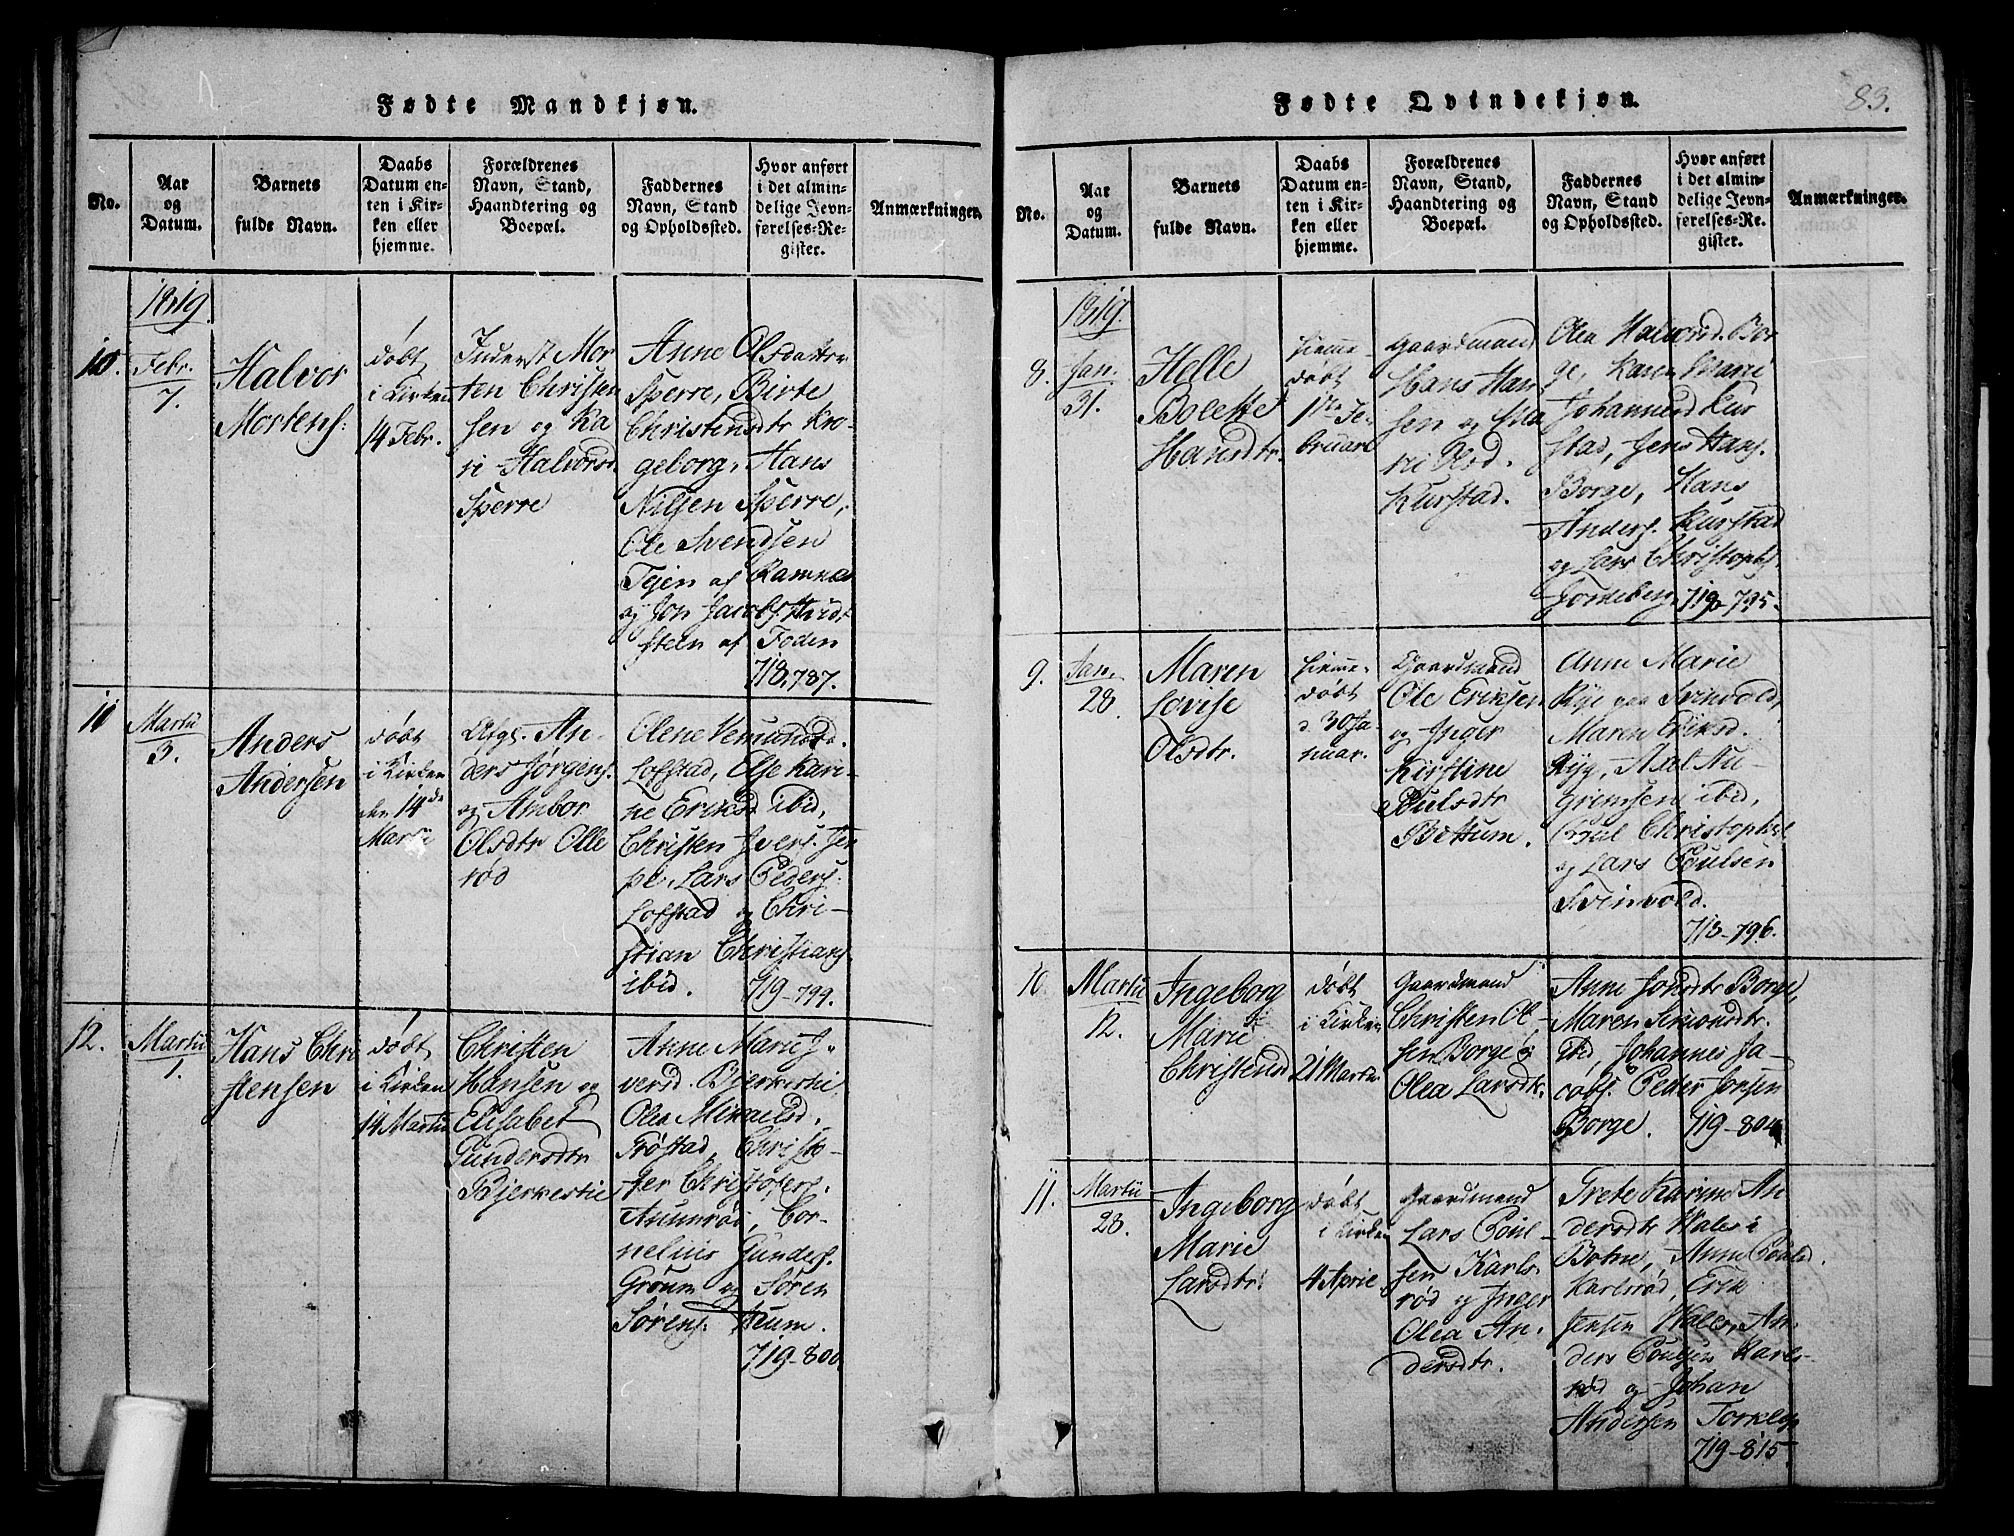 Fødte Mandkjøn.
No.
Aar
og
Datum.
Barnets
fulde Navn.
Daabs
Datum en-
ten i Kir-
ken eller
hjemme.
Forældrenes
Navn, Stand,
Haandtering og
Boepæl.
Faddernes
Navn, Stand
og Opholdssted.
Hvor anført
i det almin-
delige Jevn-
førelses-Re-
gister.
Anmærkninger.
1819.
10.
Febr.
7.
Halvor
Mortens:
døbt
i Kirken
14 Febr.
Inderst Mor
ten Christen
sen og Ka
ri Halvorsd.
Sperre
Anne Olsdatter
Sperre, Birte
Christensdtr Kro-
geborg, Hans
Nilsen Sperre,
Ole Svendsen
Tejen af Ramnæs
og Jon Jacobs. Hvidt
steen af Foden
718, 787.
11
Martii
3.
Anders
Andersen
døbt
i Kirken
den 14de
Martii
An-
ders Jørgens.
og Ambor
Olsdtr Olle
rød
Olene Vemundsd.
Lofstad, Else Kari-
ne Eriksd ibid,
Christen Ivers.
Lars Peders:
Lofstad og Chri-
stian Christians.
ibid. 719-799.
12.
Martii
1.
Hans Chri
stensen
døbt
i Kirken
14 Martii
Christen
Hansen og
Elisabet
Gundersdtr
Bjerkestie
Anne Marie I-
versd. Bjerkestie,
Olea Mikaelsd.
Trøstad, Christo-
fer Christofers.
Aunnrød, Cor-
nelius Gunders.
Groum og Søren
Sørens. Aum.
719-800
Fødte Qvindekjøn.
83.
No.
Aar
og
Datum.
Barnets
fulde Navn.
Daabs
Datum en-
ten i Kir-
ken eller
hjemme.
Forældrenes
Navn, Stand,
Haandtering og
Boepæl.
Faddernes
Navn, Stand
og Opholdssted.
Hvor anført
i det almin-
delige Jevn-
førelses-Re-
gister.
Anmærkninger.
1819.
8.
Jan.
31.
Helle
Bolette
Hansdtr.
hjemme-
døbt
1ste Fe-
bruari
Gaardmand
Hans Han
sen og
Olsd.
Kurstad.
Olea Halvorsd. Bor
ge, Karen Marie
Johannesd Kur
stad, Jens Hans.
Borge, Hans
Anders. Kurstad
og Lars Christophs.
Torkeberg, 719-795.
9.
Jan.
28.
Maren
Lovise
Olsdtr.
hjemme-
døbt
d. 30 Ja-
nuar.
Gaardmand
Ole Eriksen
og Inger
Kirstine
Poulsdtr
Bettum.
Anne Marie
Rye paa Svinvold,
Maren Eriksd.
Ryg, Axel Au-
grimsen ibid,
Poul Christophs.
og Lars Poulsen
Svinvold.
718-796.
10
Martii
12.
Ingeborg
Marie
Christensd
døbt
i Kirken
21 Martii
Gaardmand
Christen Ol-
sen Borge og
Olea Larsdtr.
Anne Jonsdtr Borge,
Maren Simonsdtr.
ibid, Johannes Ja-
cobs. Peder Jonsen
Borge. 719-804
11.
Martii
28.
Ingeborg
Marie
Larsdtr:
døbt
i Kirken
4 April
Gaardmand
Lars Poul-
sen Karls-
rød og Inger
Olea An-
dersdtr.
Grete Karine An
dersdtr Wales i
Botne, Anne Poulsd.
Karlsrød, Erik
Jensen Wales, An-
ders Poulsen Karls-
rød og Johan
Andersen Torklep
719-815.